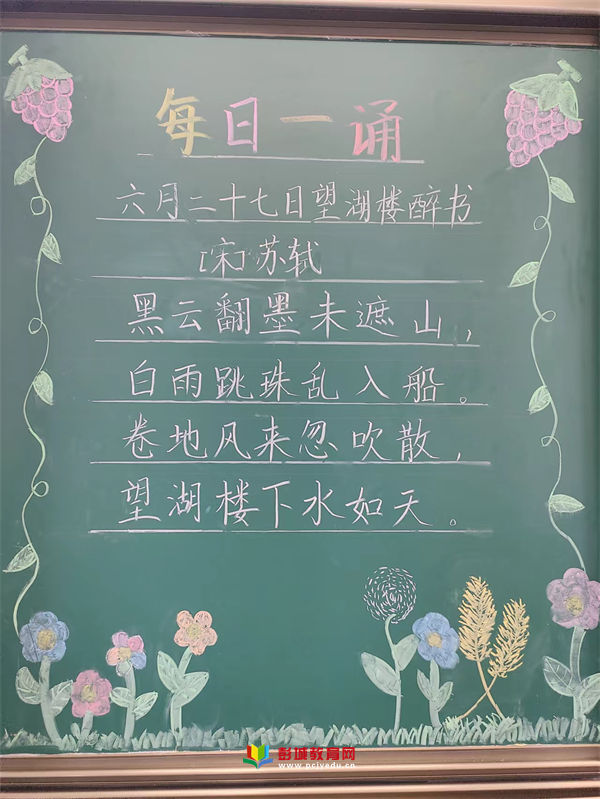 每日一诵
六月二十七日望湖楼醉书
[宋]苏轼
黑云翻墨未遮山,
白雨跳珠乱入船。
卷地风来忽吹散,
望湖楼下水如天。
彭城教育网
www.pcjyedu.cn